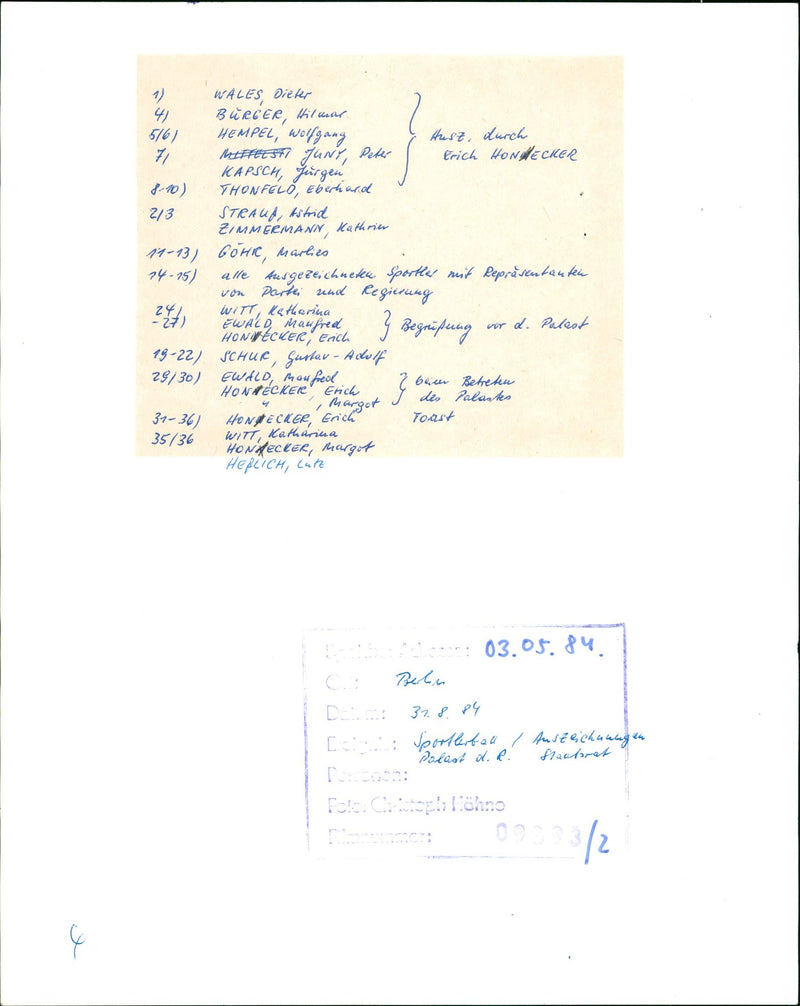 1) WALES, Dieter
4) BÜRGER, Hilmar
5/6) HEMPEL, Wolfgang } Ausz. durch
7) JUNY, Peter Erich HONECKER
KAPSCH, Jürgen
8-10) THONFELD, Eberhard
2/3 STRAUß, Astrid
ZIMMERMANN, Kathrin
11-13) GÖHR, Marlies
14-15) alle Ausgezeichneten Sportler mit Repräsentanten
von Partei und Regierung
24) WITT, Katharina
-27) EWALD, Manfred } Begrüßung vor d. Palast
HONECKER, Erich
19-22) SCHUR, Gustav-Adolf
29/30) EWALD, Manfred } beim Betreten
HONECKER, Erich des Palastes
" , Margot
31-36) HONECKER, Erich Toast
35/36 WITT, Katharina
HONECKER, Margot
HEßLICH, Lutz
03.05.84.
Ort: Berlin
Datum: 31.8.84
Ereignis: Sportlerball / Auszeichnungen
Palast d. R. Staatsrat
Personen:
Foto: Christoph Höhne
Filmnummer: 09393/2
4